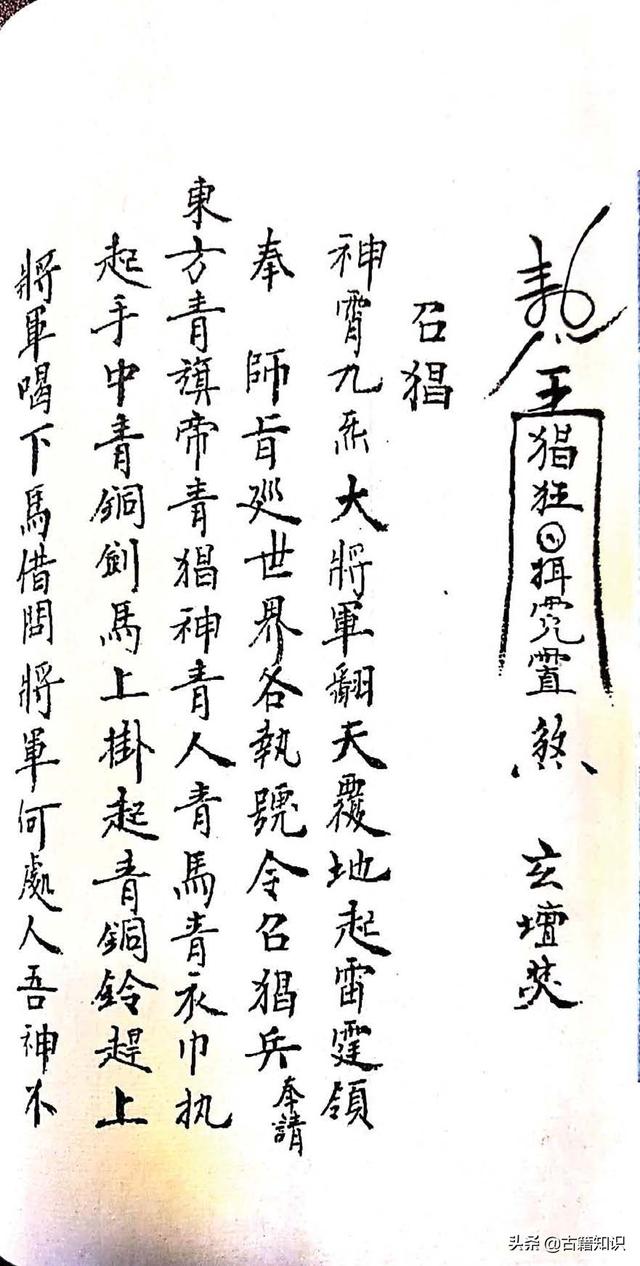 王
猖狂 煞 玄壇
召猖
神霄九炁大將軍翻天覆地起雷霆領
奉 師旨廵世界各執號令召猖兵奉請
東方青旗帝青猖神青人青馬青衣巾执
起手中青銅劍馬上掛起青銅鈴趕上
將軍喝下馬借問將軍何處人吾神不
头条 @古籍知识